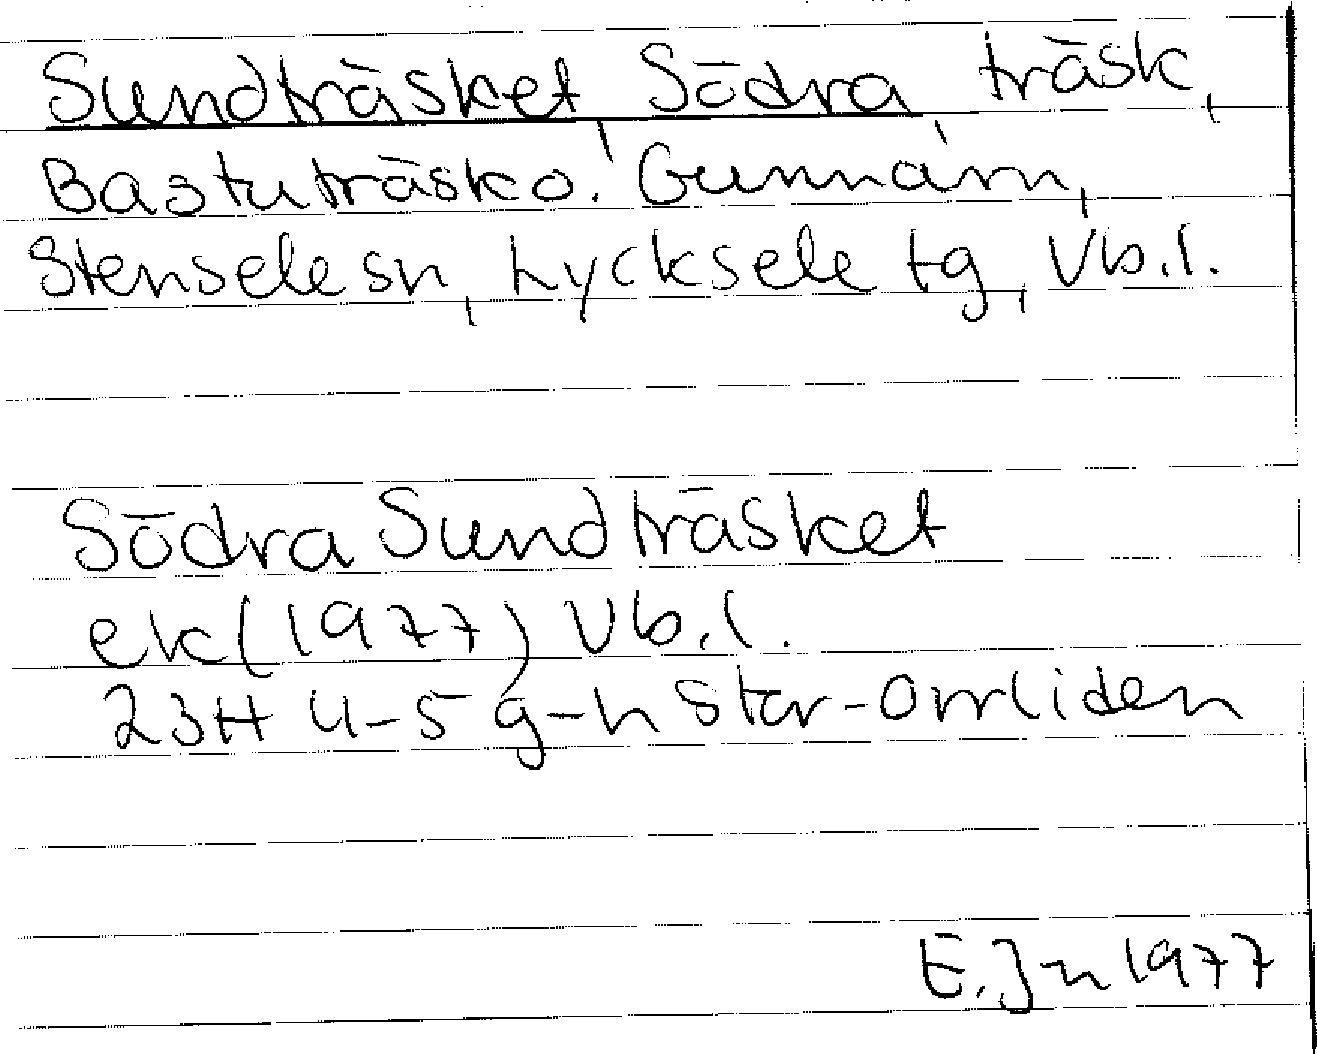 Sundträsket, Södra, träsk,
Bastuträsk o. Gunnarn,
Stensele sn, Lycksele tg, Vb.l.
Södra Sundträsket
ek (1977) Vb.l.
23H 4-5 g-h Stor-Ormliden
E.Jn 1977